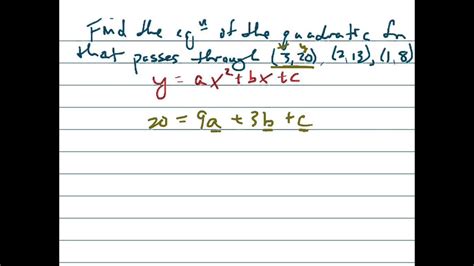 Find the eq.ⁿ of the quadratic fn
that passes through (3,20), (2,13), (1,8)
y = ax² + bx + c
20 = 9a + 3b + c